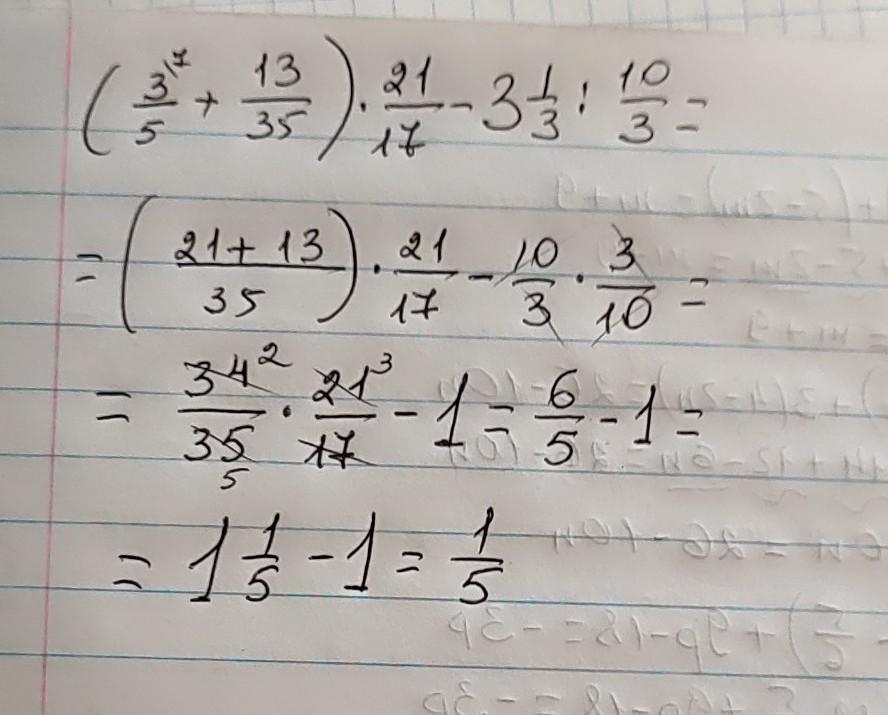 (3\7/5 + 13/35) · 21/17 - 3 1/3 : 10/3 =
= (21 + 13/35) · 21/17 - 10/3 · 3/10 =
= 34²/35 5 · 21³/17 - 1 = 6/5 - 1 =
= 1 1/5 - 1 = 1/5